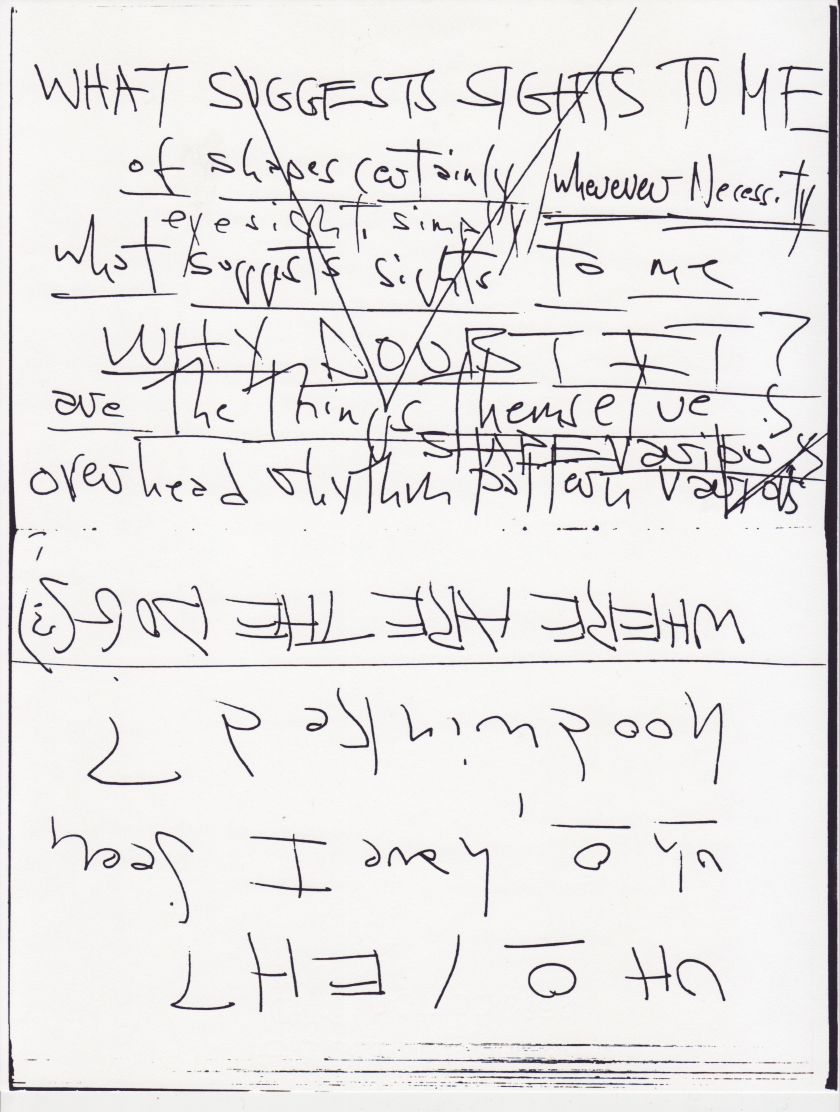 WHAT SUGGESTS SIGHTS TO ME
of shapes certainly / whenever Necessity
eyesight, simply
what suggests sights to me
WHY DOUBT IT?
are the things themselves
SHAPE Various
overhead rhythm pattern
UH O / EH ?
uh o, have I been
hoodwinked ?
WHERE ARE THE DOG(S)